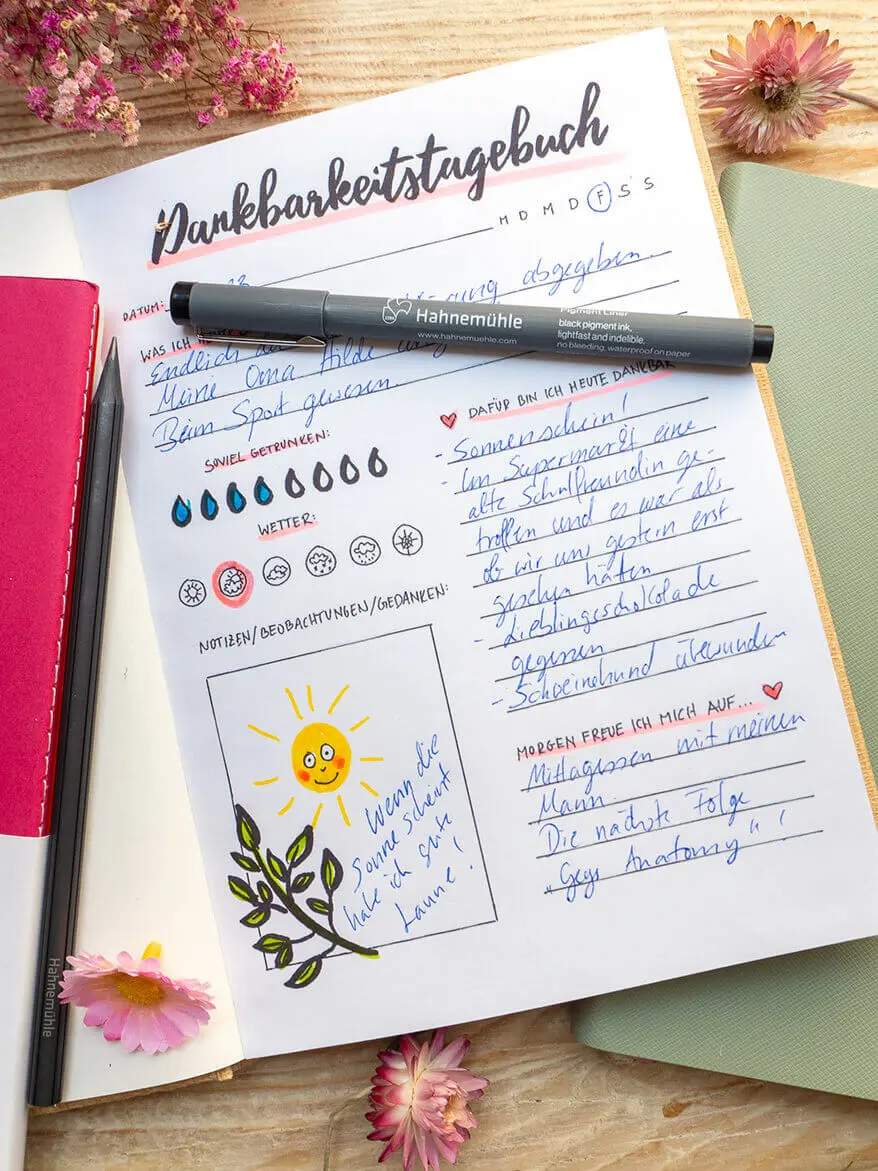 Dankbarkeitstagebuch
M D M D F S S
DATUM:
WAS ICH
abgegeben.
Endlich
Meine Oma Hilde
Beim Sport gewesen.
Hahnemühle
www.hahnemuehle.com
Pigment Liner
black pigment ink,
lightfast and indelible,
no bleeding, waterproof on paper
SOVIEL GETRUNKEN:
WETTER:
NOTIZEN/BEOBACHTUNGEN/GEDANKEN:
Wenn die
Sonne scheint
habe ich gute
Laune!
DAFÜR BIN ICH HEUTE DANKBAR
- Sonnenschein!
- Im Supermarkt eine
alte Schulfreundin ge-
troffen und es war als
ob wir uns gestern erst
gesehen hätten
- Lieblingsschokolade
gegessen
- Schweinehund überwunden
MORGEN FREUE ICH MICH AUF...
Mittagessen mit meinen
Mann.
Die nächste Folge
„Geys Anatomy"!
Hahnemühle